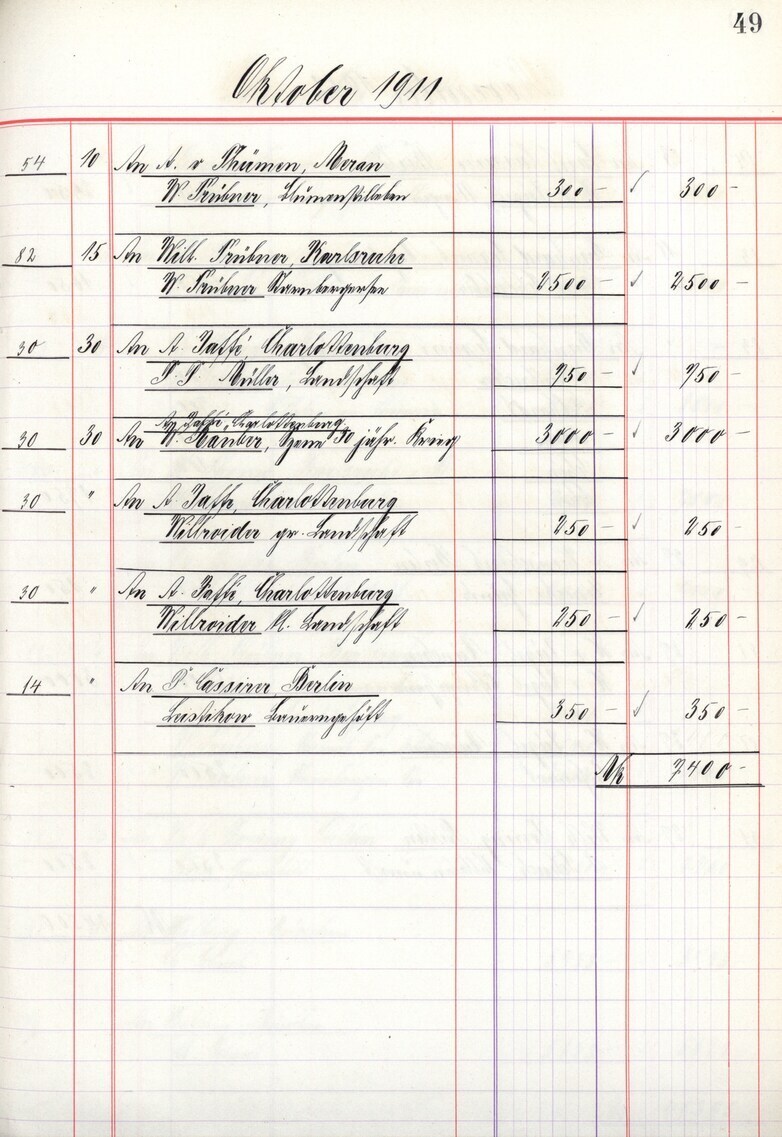 49
Oktober 1911
54 10 An A. v Thümen, Meran
W. Trübner, Blumenstilleben 300 – ✓ 300 –
82 15 An Wilh. Trübner, Karlsruhe
W. Trübner Starnbergersee 2500 – ✓ 2500 –
30 30 An A. Jaffé, Charlottenburg
P. P. Müller, Landschaft 750 – ✓ 750 –
A. Jaffé, Charlottenburg
30 30 An W. Räuber, Szene 30 jähr. Krieg 3000 – ✓ 3000 –
30 " An A. Jaffe, Charlottenburg
Willroider gr. Landschaft 250 – ✓ 250 –
30 " An A. Jaffé, Charlottenburg
Willroider kl. Landschaft 250 – ✓ 250 –
14 " An P. Cassirer, Berlin
Leistikow Bauerngehöft 350 – ✓ 350 –
Mk 7400 –